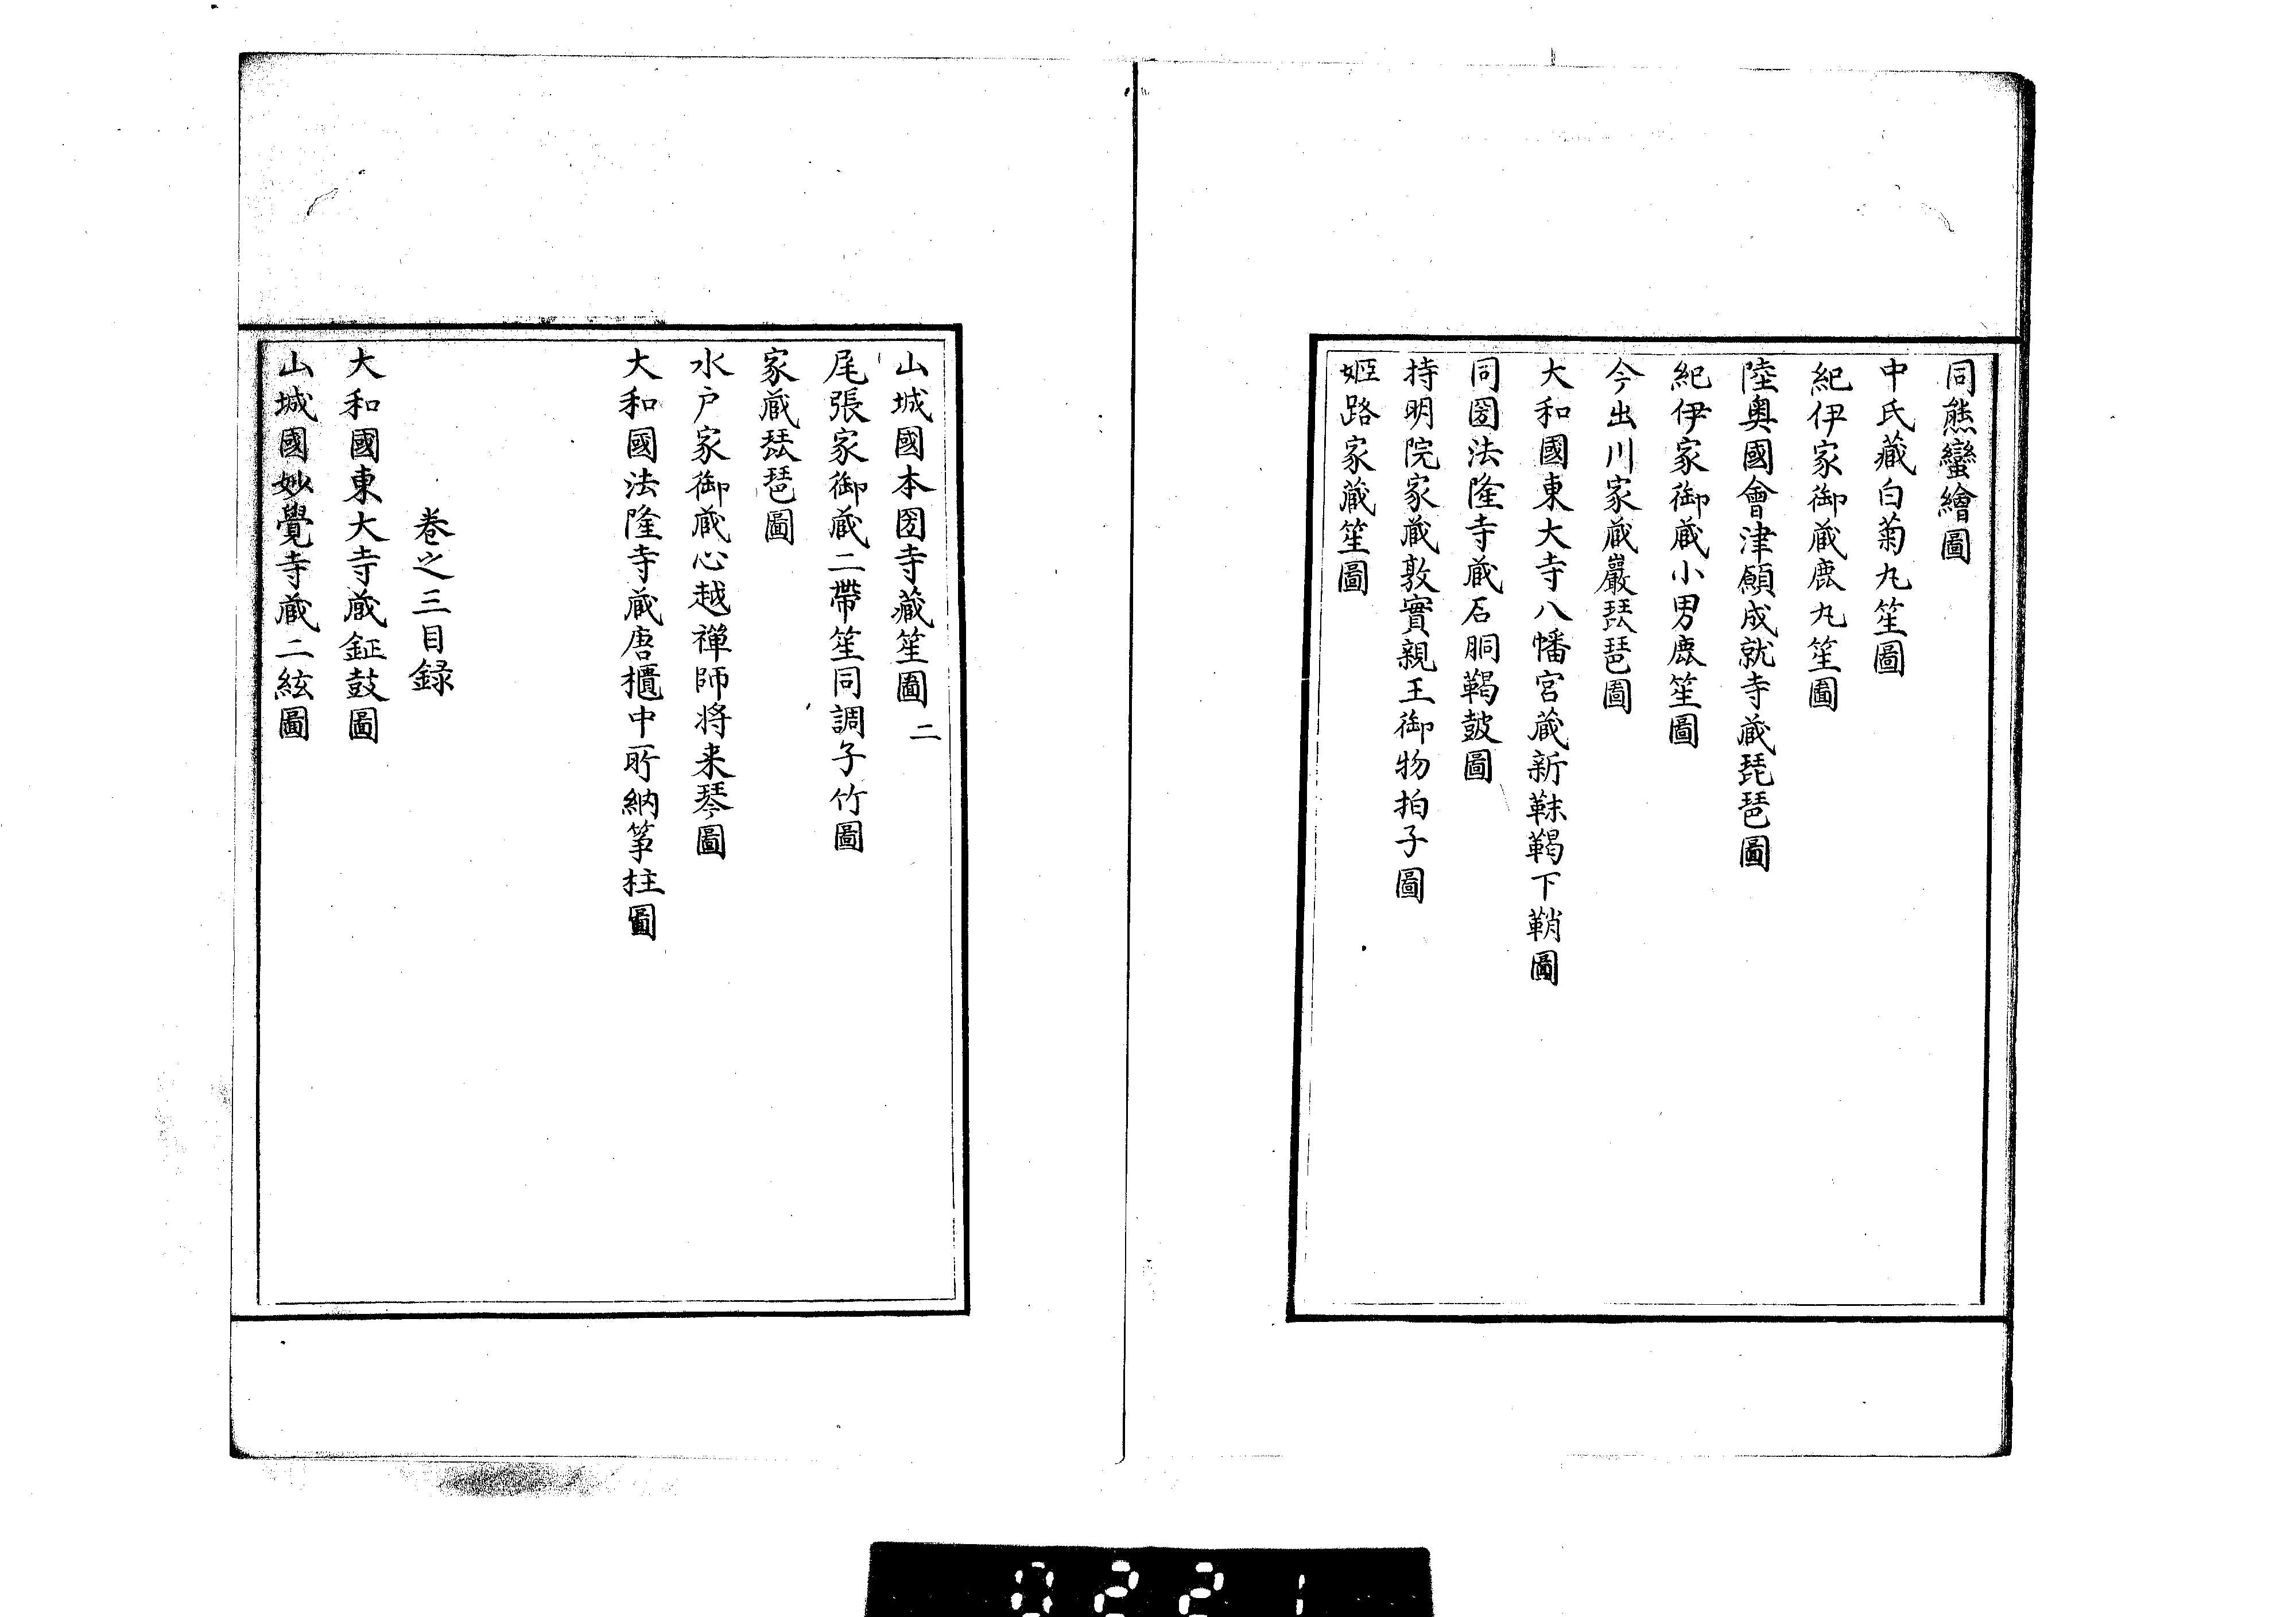 同熊蠻繪圖
中氏藏白菊丸笙圖
紀伊家御蔵鹿丸笙圖
陸奥國會津願成就寺蔵琵琶圖
紀伊家御蔵小男鹿笙圖
今出川家蔵巖琵琶圖
大和國東大寺八幡宮蔵新靺鞨下鞘圖
同圀法隆寺蔵石胴鞨鼓圖
持明院家蔵敦實親王御物拍子圖
姫路家蔵笙圖
山城國本圀寺藏笙圖二
尾張家御蔵二帶笙同調子竹圖
家蔵琵琶圖
水戸家御蔵心越禅師将来琴圖
大和國法隆寺蔵唐櫃中所納箏柱圖
巻之三目録
大和國東大寺蔵鉦鼓圖
山城國妙覺寺蔵二絃圖
0221